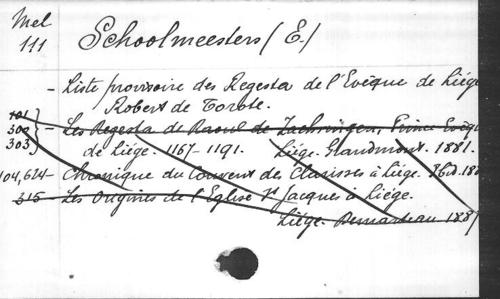 Mel
111
Schoolmeesters (E.)
- Liste provisoire des Regesta de l'Evêque de Liége
Robert de Torote.
101
302 - Les Regesta de Raoul de Zaehringen, Prince Evêq
303
de Liége. 1167-1191. Liége. Grandmont. 1881.
104,624- Chronique du Couvent des Clarisses à Liége. Ibid. 188
315 - Les Origines de l'Eglise St Jacques à Liége.
Liége. Demarteau 188